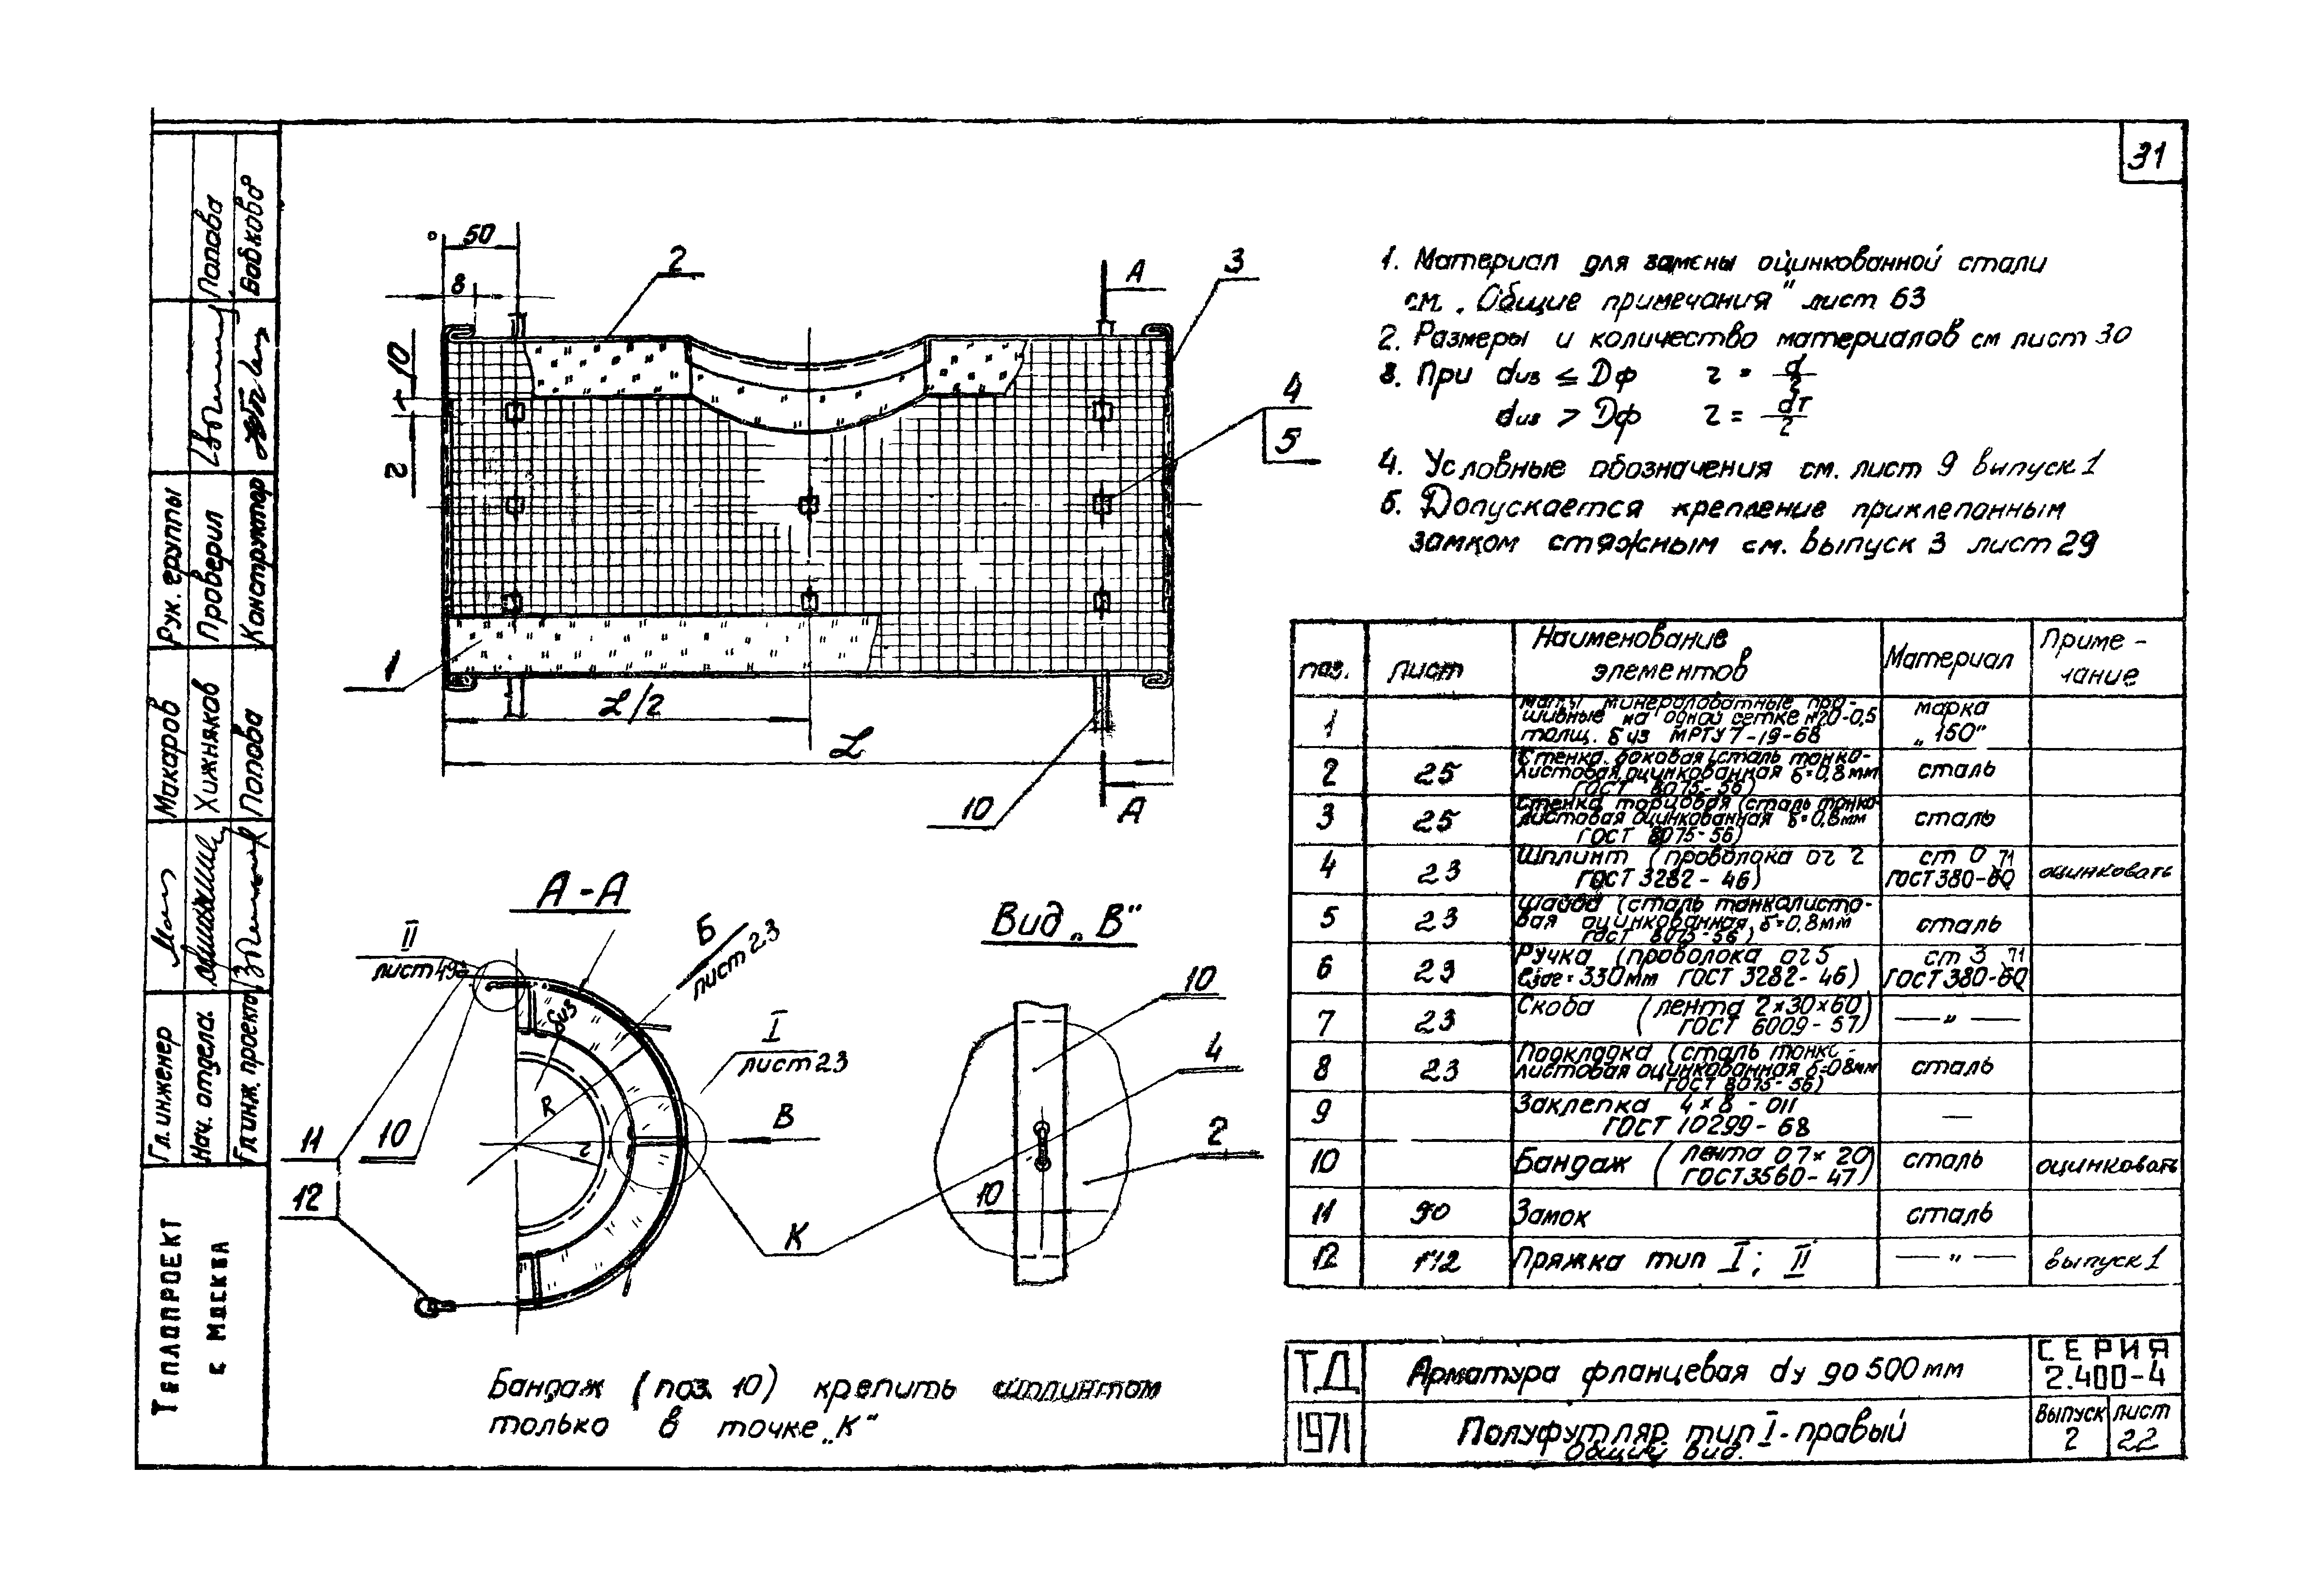 31
1. Материал для замены оцинкованной стали
см. „Общие примечания" лист 63
2. Размеры и количество материалов см лист 30
3. При dиз ≤ Dф r = d/2
dиз > Dф r = dт/2
4. Условные обозначения см. лист 9 выпуск 1
5. Допускается крепление приклепанным
замком стяжным см. выпуск 3 лист 29
50
8
10
r
2
3
4
5
1
10
L/2
L
А
А
А-А
II
лист 49
Б
лист 23
I
лист 23
δиз
R
r
В
К
11
10
12
Вид „В"
10
4
2
10
Бандаж (поз. 10) крепить шплинтом
только в точке „К"
поз. лист Наименование элементов Материал Примечание
1 маты минераловатные прошивные на одной сетке №20-0,5 толщ. δиз МРТУ 7-19-68 марка „150"
2 25 Стенка боковая (сталь тонколистовая оцинкованная δ=0,8мм ГОСТ 8075-56) сталь
3 25 Стенка торцовая (сталь тонколистовая оцинкованная δ=0,8мм ГОСТ 8075-56) сталь
4 23 Шплинт (проволока ОЧ 2 ГОСТ 3282-46) ст 0 ГОСТ 380-60 71 оцинковать
5 23 Шайба (сталь тонколистовая оцинкованная δ=0,8мм ГОСТ 8075-56) сталь
6 23 Ручка (проволока ОЧ 5 ℓзаг=330мм ГОСТ 3282-46) ст 3 ГОСТ 380-60 71
7 23 Скоба (лента 2×30×60) ГОСТ 6009-57) —„—
8 23 Подкладка (сталь тонколистовая оцинкованная δ=0,8мм ГОСТ 8075-56) сталь
9 Заклепка 4×8-011 ГОСТ 10299-68 —
10 Бандаж (лента 0,7×20 ГОСТ 3560-47) сталь оцинковать
11 90 Замок сталь
12 Пряжка тип I; II —„— выпуск 1
ТД
1971
Арматура фланцевая dу до 500 мм
Полуфутляр тип I-правый
Общий вид.
СЕРИЯ
2.400-4
выпуск 2
лист 22
Гл. инженер Макаров
Нач. отдела Хижняков
Гл. инж. проекта Попова
Рук. группы
Проверил Попова
Конструктор Бабкова
Теплопроект
г. Москва